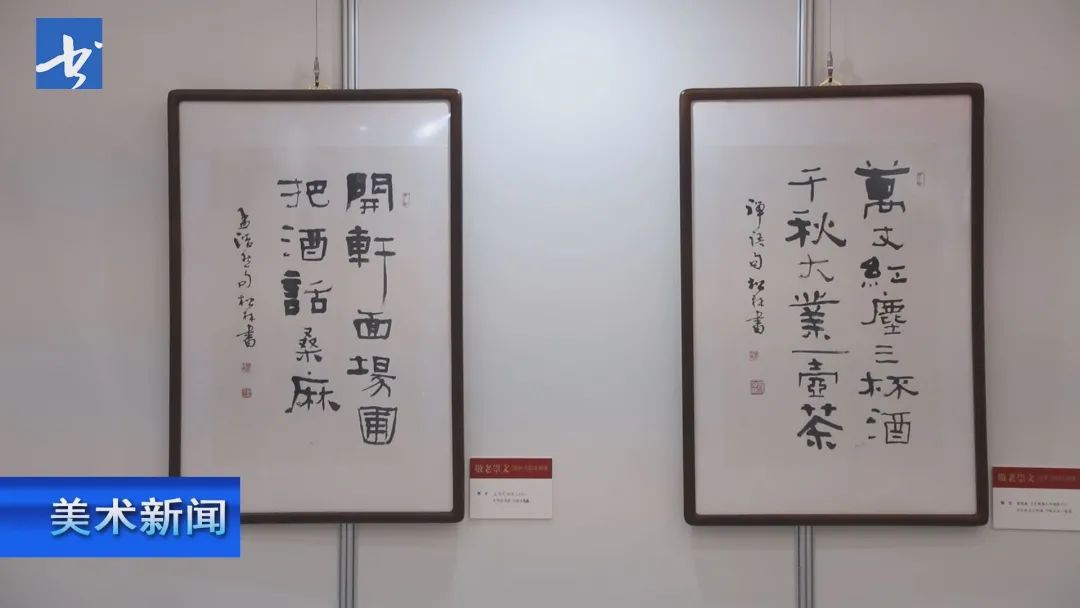 書
開軒面場圃
把酒話桑麻
孟浩然句 松林書
萬丈紅塵三杯酒
千秋大業一壺茶
禪語句 松林書
敬老崇文
敬老崇文
美术新闻